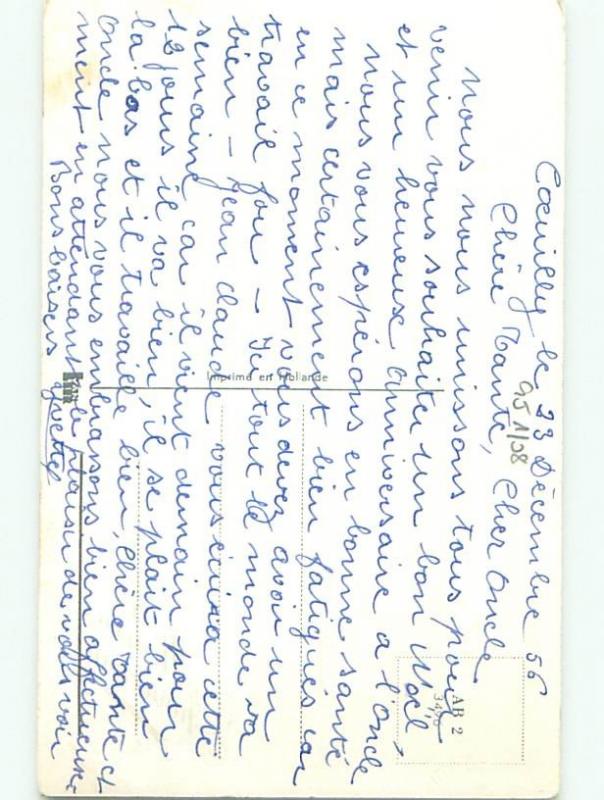 Coeuilly le 23 Décembre 56
Chère Tante, Cher Oncle
Nous nous unissons tous pour
venir vous souhaiter un bon Noël,
et un heureux Anniversaire a l'oncle
nous vous espérons en bonne santé
mais certainement bien fatigués car
en ce moment vous devez avoir un
travail fou - Ici tout le monde va
bien - Jean Claude vous écrira cette
semaine car il vient demain pour
12 jours il va bien, il se plait bien
la bas et il travaille bien, Chère Tante et
Oncle nous vous embrassons bien affectueuse-
ment en attendant le plaisir de vous voir
Bons baisers Yvette
Imprimé en Hollande
AB 2
95 1/08